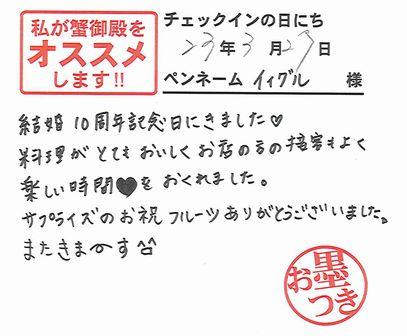 私が蟹御殿を
オススメ
します!!
チェックインの日にち
23年3月27日
ペンネーム イィグル 様
結婚10周年記念日にきました♡
料理がとてもおいしくお店の方の接客もよく
楽しい時間♥をおくれました。
サプライズのお祝フルーツありがとうございました。
またきまーす^^
お墨
つき